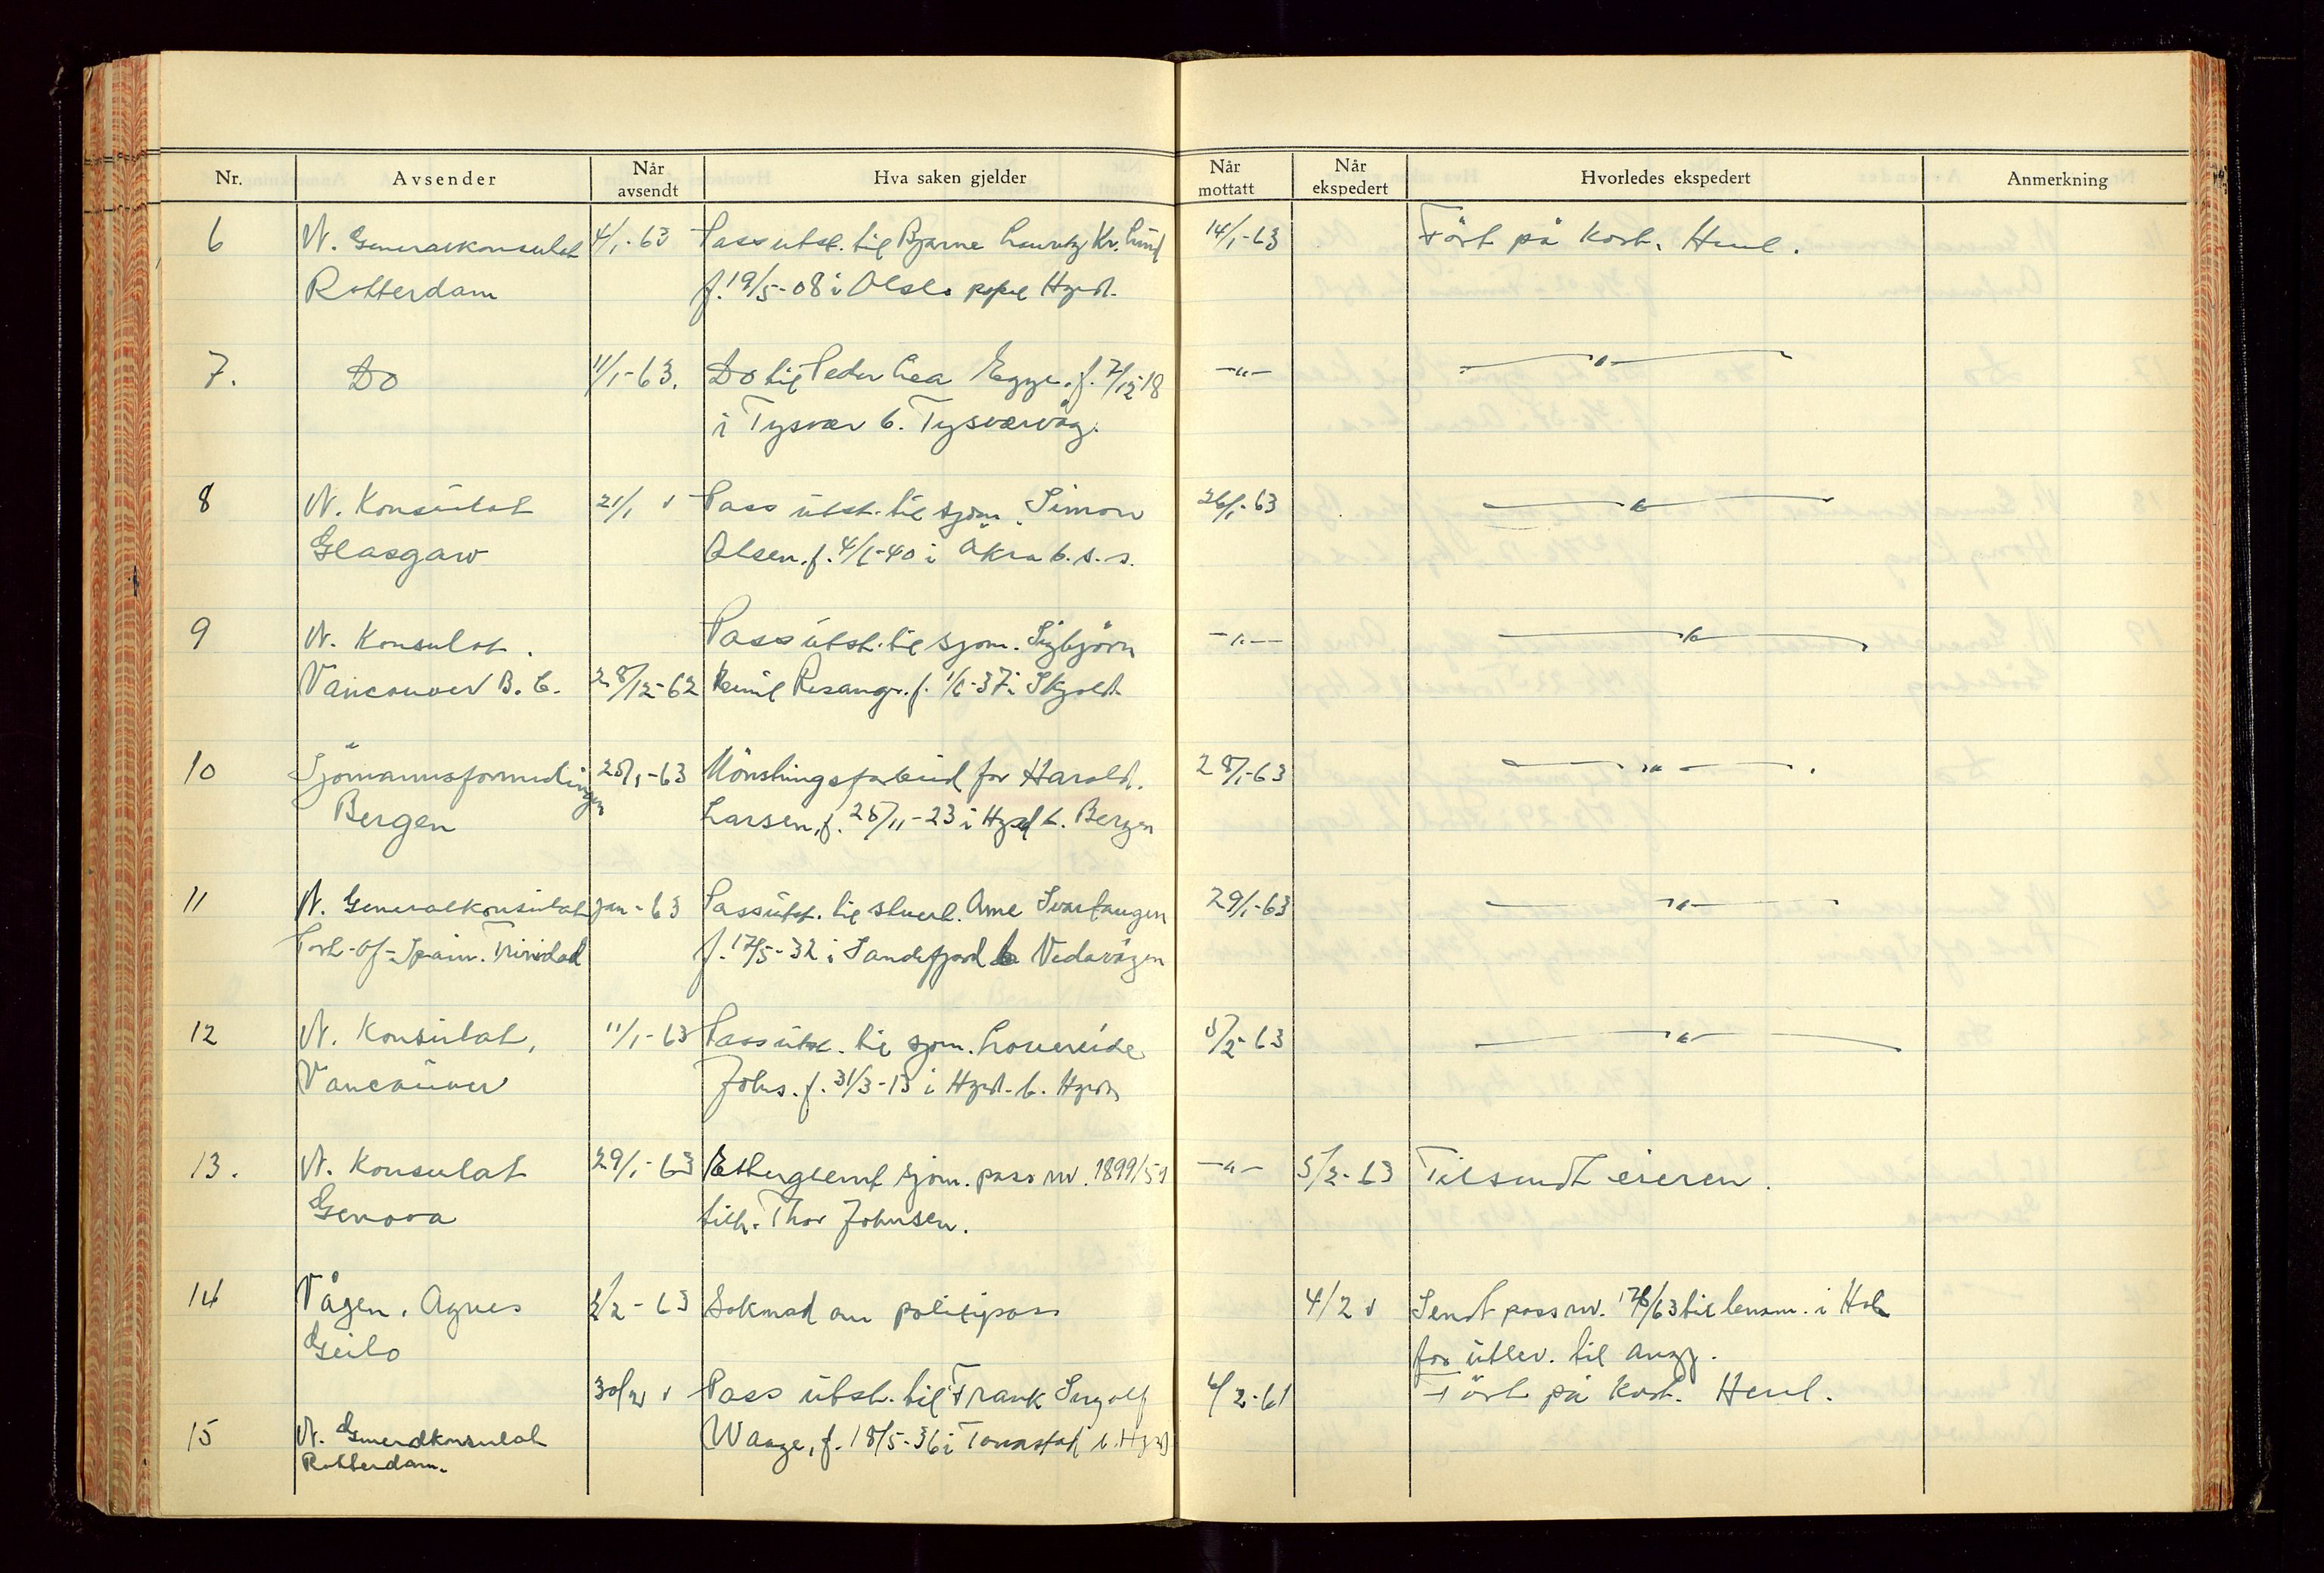 Nr. Avsender Når avsendt Hva saken gjelder Når mottatt Når ekspedert Hvorledes ekspedert Anmerkning
6 N. Generalkonsulat 4/1-63 Pass utst. til Bjarne Lauritz Kr. Lund 14/1-63 Fört på kort. Henl.
Rotterdam f. 19/5-08 i Hgsd.
7. Do 11/1-63. Do til Peder Lea Egge. f. 7/12-18 -"- -"-
i Tysvær b. Tysværvåg.
8 N. Konsulat 21/1 " Pass utst. til sjøm. Simon 26/1-63 -"-
Glasgaw Olsen. f. 4/6-40 i Åkra b. s. s.
9 N. Konsulat. Pass utst. til sjøm. Sigbjörn -"- -"-
Vancouver B. C. 28/12-62 Emil Risanger. f. 1/6-37 i Skjold
10 Sjömannsformidlingen 25/1-63 Mönstringsforbud for Harald. 28/1-63 -"-
Bergen Larsen, f. 25/11-23 i Hgsd b. Bergen
11 N. Generalkonsulat jan-63 Pass utst. til stuert. Arne Svartangen 29/1-63 -"-
Port-of-Spain. Trinidad f. 17/5-32 i Sandefjord b Vedavågen
12 N. Konsulat, 11/1-63 Pass utst. til sjøm. 5/2-63 -"-
Vancouver Johs. f. 31/3-13 i Hgsd. b. Hgsd.
13. N. Konsulat 29/1-63 Etterglemt sjøm. pass nr. 1899/59 -"- 5/2-63 Tilsendt eieren.
Genova tilh. Thor Johnsen.
14 Vågen, Agnes 2/2-63 Søknad om politipass 4/2 " Sendt pass nr. 176/63 til lensm. i Hol
Geilo for utlev. til angj.
Pass utst. til Frank Ingolf Fört på kort. Henl.
15 N. Generalkonsulat Waage, f. 18/5-36 i Torvastad b. Hgsd
Rotterdam.